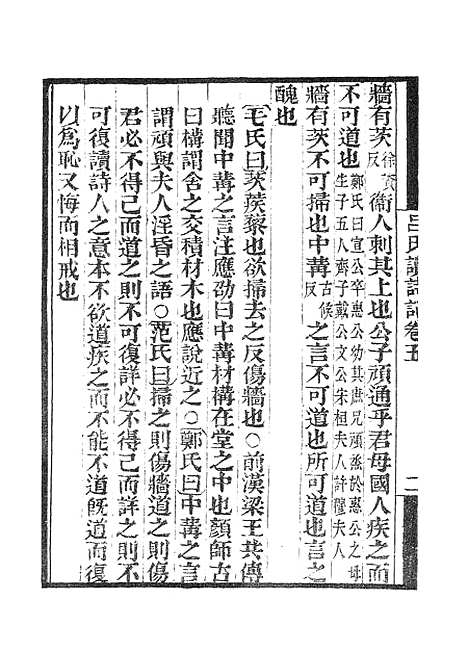 呂氏讀詩記卷五 二
牆有茨徐資反衞人刺其上也公子頑通乎君母國人疾之而
不可道也鄭氏曰宣公卒惠公幼其庶兄頑烝於惠公之母生子五人齊子戴公文公宋桓夫人許穆夫人
牆有茨不可掃也中冓古候反之言不可道也所可道也言之
醜也
毛氏曰茨蒺藜也欲掃去之反傷牆也○前漢梁王共傳
聽聞中冓之言注應劭曰中冓材構在堂之中也顔師古
曰構謂舍之交積材木也應說近之○鄭氏曰中冓之言
謂頑與夫人淫昏之語○范氏曰掃之則傷牆道之則傷
君必不得已而道之則不可復詳必不得已而詳之則不
可復讀詩人之意本不欲道疾之而不能不道旣道而復
以爲恥又悔而相戒也